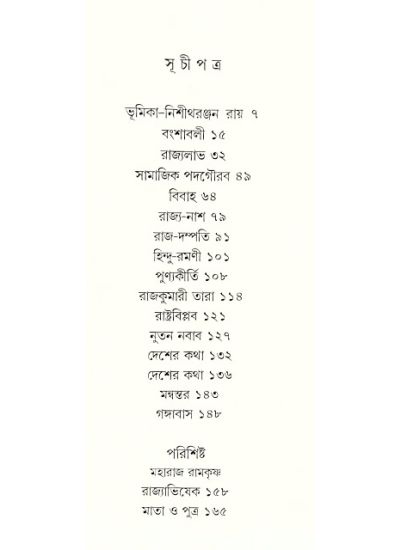 সূচীপত্র
ভূমিকা-নিশীথরঞ্জন রায় ৭
বংশাবলী ১৫
রাজ্যলাভ ৩২
সামাজিক পদগৌরব ৪৯
বিবাহ ৬৪
রাজ্য-নাশ ৭৯
রাজ-দম্পতি ৯১
হিন্দু-রমণী ১০১
পুণ্যকীর্তি ১০৮
রাজকুমারী তারা ১১৪
রাষ্ট্রবিপ্লব ১২১
নুতন নবাব ১২৭
দেশের কথা ১৩২
দেশের কথা ১৩৬
মন্বন্তর ১৪৩
গঙ্গাবাস ১৪৮
পরিশিষ্ট
মহারাজ রামকৃষ্ণ
রাজ্যাভিষেক ১৫৮
মাতা ও পুত্র ১৬৫